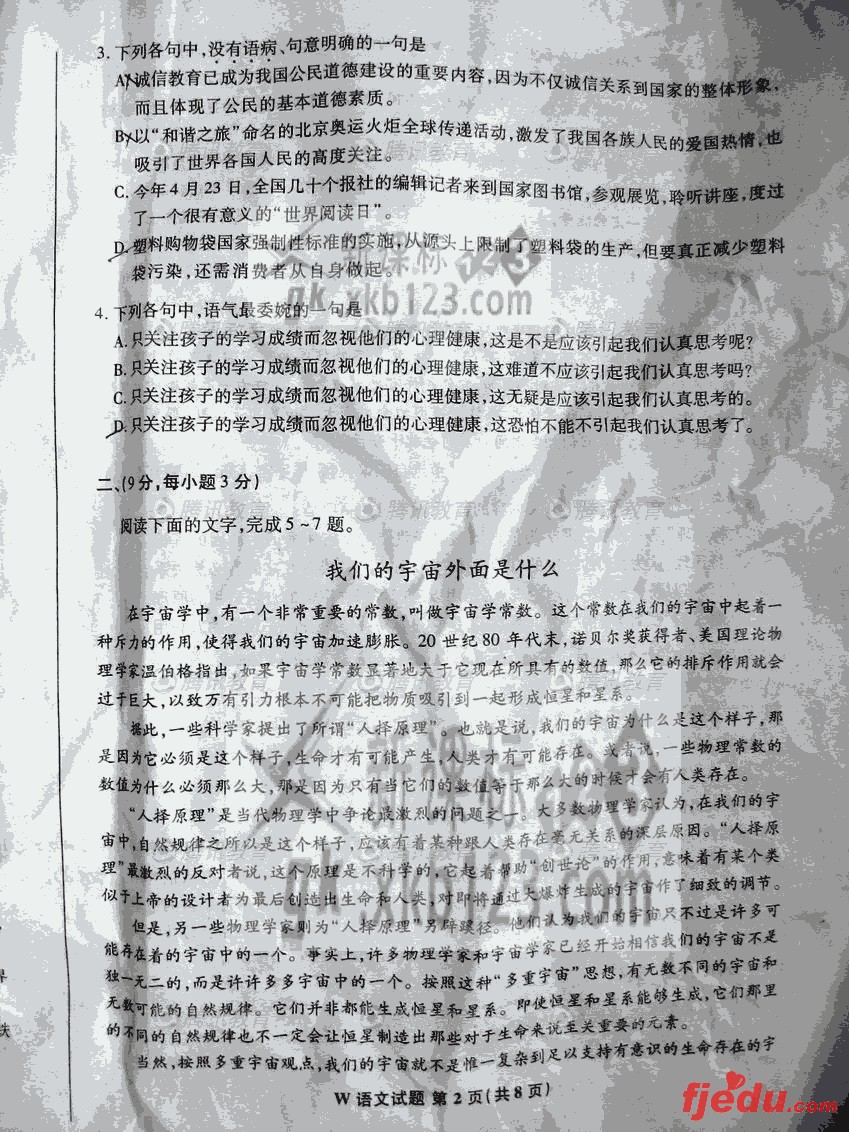 3. 下列各句中,没有语病,句意明确的一句是
A. 诚信教育已成为我国公民道德建设的重要内容,因为不仅诚信关系到国家的整体形象,
而且体现了公民的基本道德素质。
B. 以“和谐之旅”命名的北京奥运火炬全球传递活动,激发了我国各族人民的爱国热情,也
吸引了世界各国人民的高度关注。
C. 今年4月23日,全国几十个报社的编辑记者来到国家图书馆,参观展览,聆听讲座,度过
了一个很有意义的“世界阅读日”。
D. 塑料购物袋国家强制性标准的实施,从源头上限制了塑料袋的生产,但要真正减少塑料
袋污染,还需消费者从自身做起。
4. 下列各句中,语气最委婉的一句是
A. 只关注孩子的学习成绩而忽视他们的心理健康,这是不是应该引起我们认真思考呢?
B. 只关注孩子的学习成绩而忽视他们的心理健康,这难道不应该引起我们认真思考吗?
C. 只关注孩子的学习成绩而忽视他们的心理健康,这无疑是应该引起我们认真思考的。
D. 只关注孩子的学习成绩而忽视他们的心理健康,这恐怕不能不引起我们认真思考了。
二、(9分,每小题3分)
阅读下面的文字,完成5~7题。
我们的宇宙外面是什么
在宇宙学中,有一个非常重要的常数,叫做宇宙学常数。这个常数在我们的宇宙中起着一
种斥力的作用,使得我们的宇宙加速膨胀。20世纪80年代末,诺贝尔奖获得者、美国理论物
理学家温伯格指出,如果宇宙学常数显著地大于它现在所具有的数值,那么它的排斥作用就会
过于巨大,以致万有引力根本不可能把物质吸引到一起形成恒星和星系。
据此,一些科学家提出了所谓“人择原理”。也就是说,我们的宇宙为什么是这个样子,那
是因为它必须是这个样子,生命才有可能产生,人类才有可能存在。或者说,一些物理常数的
数值为什么必须那么大,那是因为只有当它们的数值等于那么大的时候才会有人类存在。
“人择原理”是当代物理学中争论最激烈的问题之一。大多数物理学家认为,在我们的宇
宙中,自然规律之所以是这个样子,应该有着某种跟人类存在毫无关系的深层原因。“人择原
理”最激烈的反对者说,这个原理是不科学的,它起着帮助“创世论”的作用,意味着有某个类
似于上帝的设计者为最后创造出生命和人类,对即将通过大爆炸生成的宇宙作了细致的调节。
但是,另一些物理学家则为“人择原理”另辟蹊径。他们认为我们的宇宙只不过是许多可
能存在着的宇宙中的一个。事实上,许多物理学家和宇宙学家已经开始相信我们的宇宙不是
独一无二的,而是许许多多宇宙中的一个。按照这种“多重宇宙”思想,有无数不同的宇宙和
无数可能的自然规律。它们并非都能生成恒星和星系。即使恒星和星系能够生成,它们那里
的不同的自然规律也不一定会让恒星制造出那些对于生命来说至关重要的元素。
当然,按照多重宇宙观点,我们的宇宙就不是惟一复杂到足以支持有意识的生命存在的宇
W 语文试题 第2页(共8页)
新课标123
gk.xkb123.com
新课标123
gk.xkb123.com
腾讯教育
fjedu.com